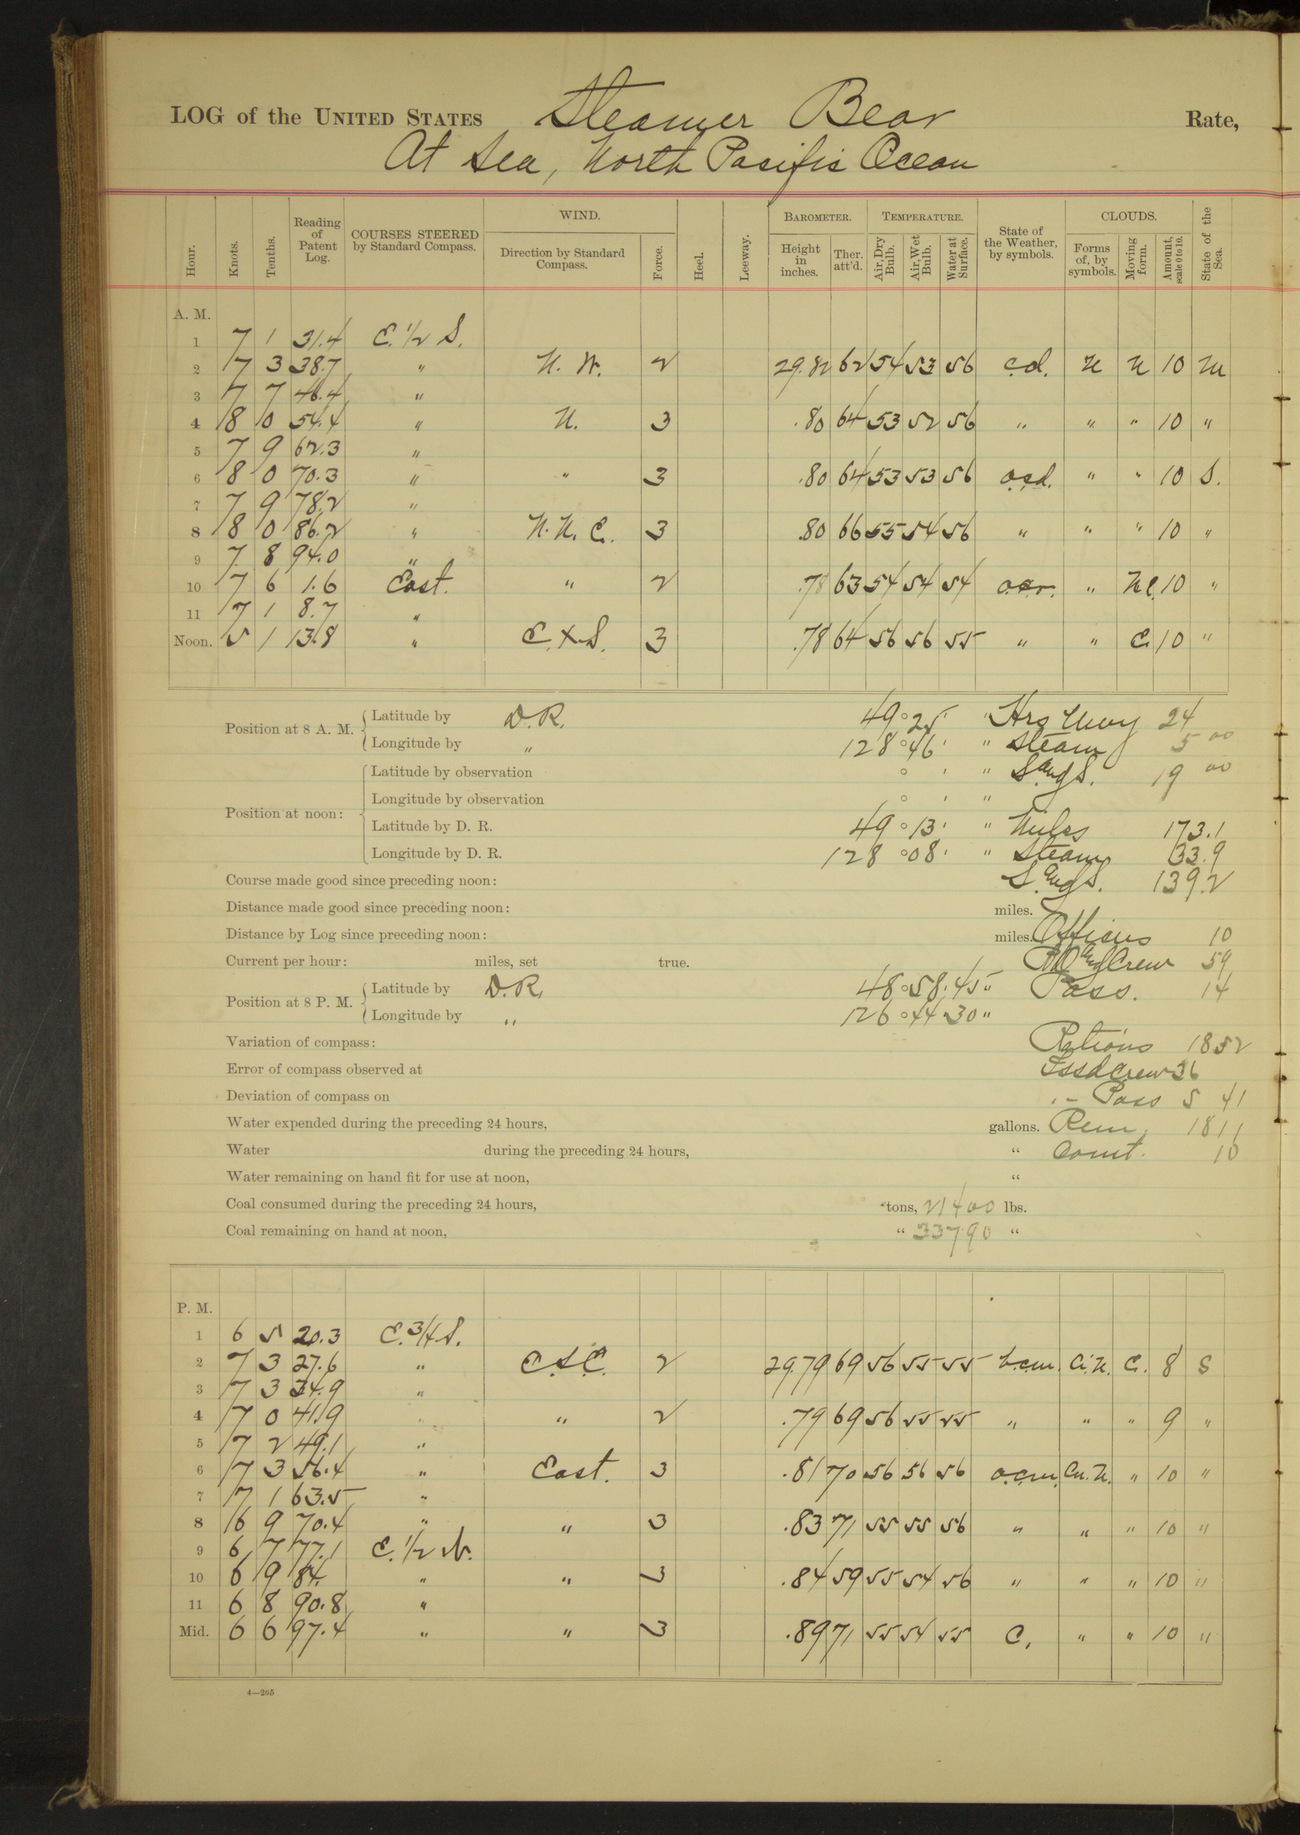 LOG of the UNITED STATES Steamer Bear Rate,
At Sea, North Pacific Ocean
Hour. Knots. Tenths. Reading of Patent Log. COURSES STEERED by Standard Compass. WIND. Direction by Standard Compass. Force. Heel. Leeway. BAROMETER. Height in inches. Ther. att'd. TEMPERATURE. Air, Dry Bulb. Air, Wet Bulb. Water at Surface. State of the Weather, by symbols. CLOUDS. Forms of, by symbols. Moving form. Amount, scale 0 to 10. State of the Sea.
A. M.
1 7 1 31.4 E. 1/2 S.
2 7 3 38.7 " N. W. 2 29.82 62 54 53 56 c.d. N N 10 M
3 7 7 46.4 "
4 8 0 54.4 " N. 3 .80 64 53 52 56 " " " 10 "
5 7 9 62.3 "
6 8 0 70.3 " " 3 .80 64 53 53 56 o.c.d. " " 10 S.
7 7 9 78.2 "
8 8 0 86.2 " N. N. E. 3 .80 66 55 54 56 " " " 10 "
9 7 8 94.0 "
10 7 6 1.6 East. " 2 .78 63 54 54 54 o.c.r. " NE. 10 "
11 7 1 8.7 "
Noon. 5 1 13.8 " E. x S. 3 .78 64 56 56 55 " " E. 10 "
Position at 8 A. M. Latitude by D. R. 49 ° 25 ' " Hrs Unwy 24
Longitude by " 128 ° 46 ' " Steam 5 00
Latitude by observation ° ' " S. and S. 19 00
Longitude by observation ° ' "
Position at noon: Latitude by D. R. 49 ° 13 ' " Miles 173.1
Longitude by D. R. 128 ° 08 ' " Steam 33.9
Course made good since preceding noon: S. and S. 139.2
Distance made good since preceding noon: miles.
Distance by Log since preceding noon: miles. Officers 10
Current per hour: miles, set true. P.O. and Crew 59
Position at 8 P. M. Latitude by D. R. 48 ° 58 ' 45 " Pass. 14
Longitude by " 126 ° 44 ' 30 "
Variation of compass: Rations 1852
Error of compass observed at Issd Crew 36
Deviation of compass on " Pass 5 41
Water expended during the preceding 24 hours, gallons. Rem. 1811
Water during the preceding 24 hours, " Comt. 10
Water remaining on hand fit for use at noon, "
Coal consumed during the preceding 24 hours, tons, 21400 lbs.
Coal remaining on hand at noon, " 33790 "
P. M.
1 6 5 20.3 E. 3/4 S.
2 7 3 27.6 " E. S. E. 2 29.79 69 56 55 55 b.c.m. Ci. N. E. 8 S
3 7 3 34.9 "
4 7 0 41.9 " " 2 .79 69 56 55 55 " " " 9 "
5 7 2 49.1 "
6 7 3 56.4 " East. 3 .81 70 56 56 56 o.c.m. Cu. N. " 10 "
7 7 1 63.5 "
8 6 9 70.4 " " 3 .83 71 55 55 56 " " " 10 "
9 6 7 77.1 E. 1/2 N.
10 6 9 84. " " 3 .84 59 55 54 56 " " " 10 "
11 6 8 90.8 "
Mid. 6 6 97.4 " " 3 .89 71 55 54 55 C. " " 10 "
4—265